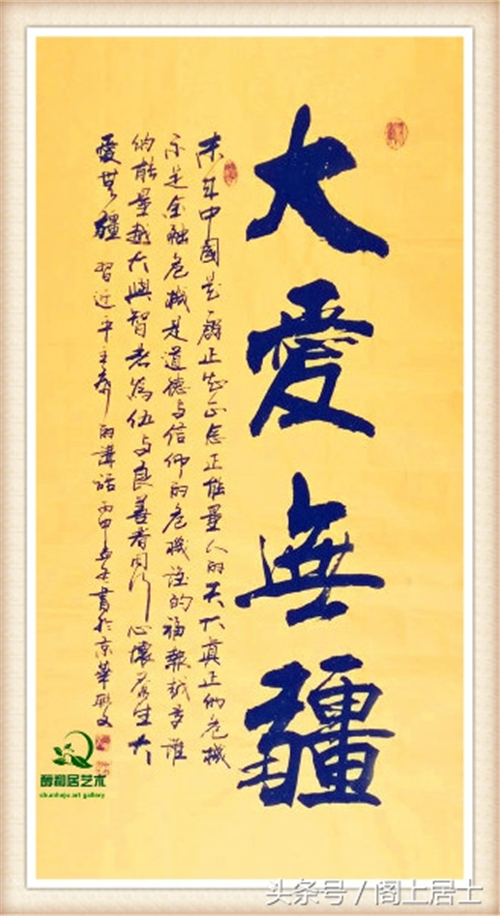 大愛無疆
未来中國是群正知正念正能量人的天下真正的危機
不是金融危機是道德与信仰的危機誰的福報越多誰
的能量越大與智者為伍与良善者同行心懷蒼生大
愛無疆 習近平主席的講話 丙申書於京華
醇和居艺术
chunheju art gallery
头条号 / 阁上居士